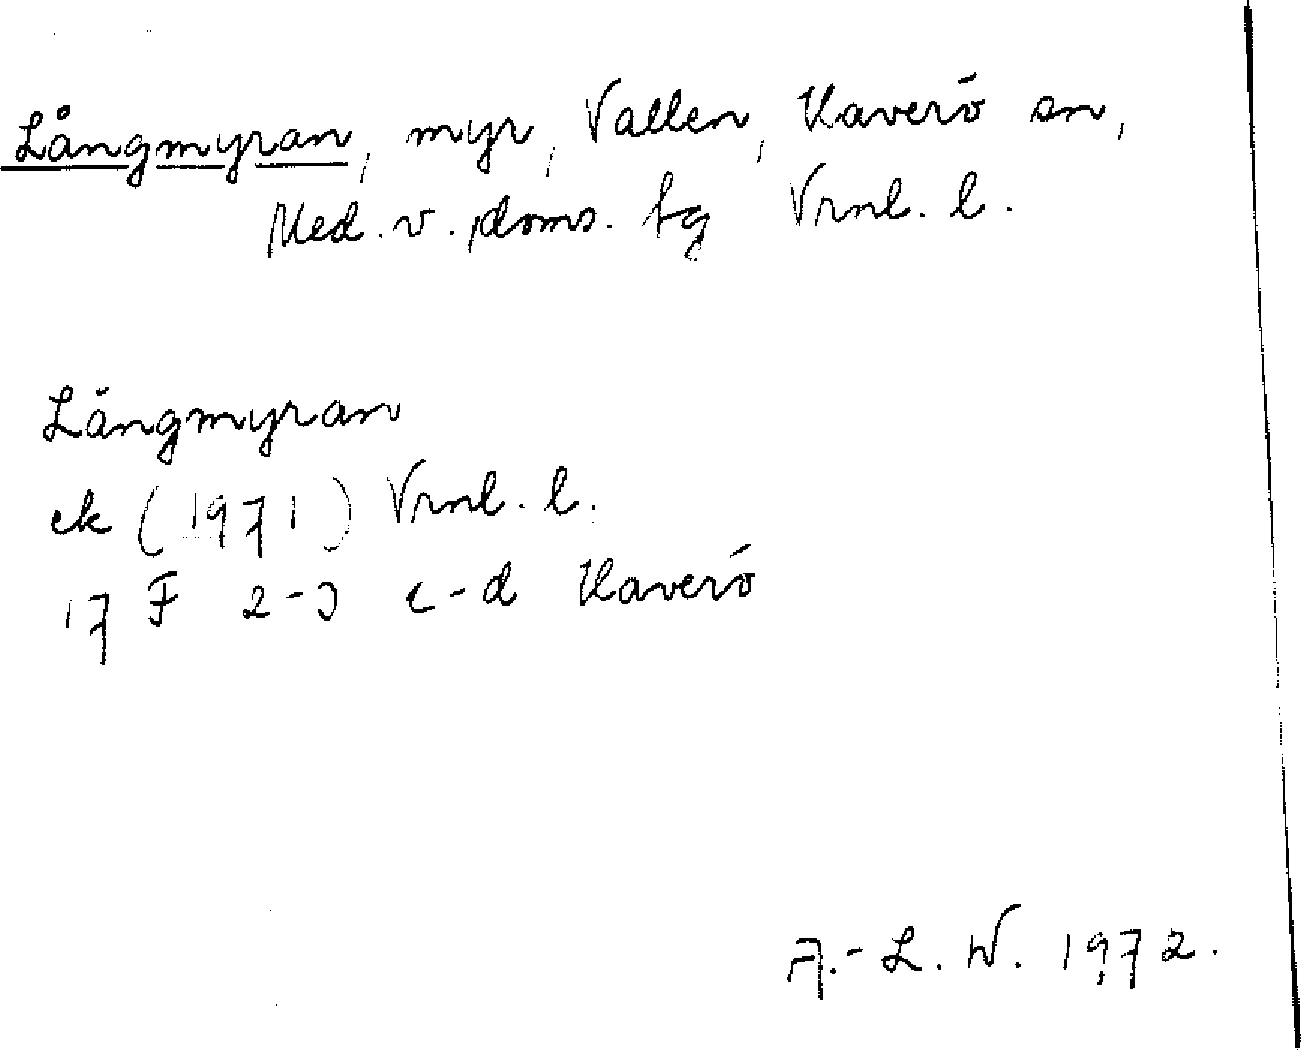 Långmyran, myr, Vallen, Haverö sn,
Med. v. doms. fg Vrnl. l.
Långmyran
ek (1971) Vrnl. l.
17 F 2-3 c-d Haverö
A.-L. W. 1972.